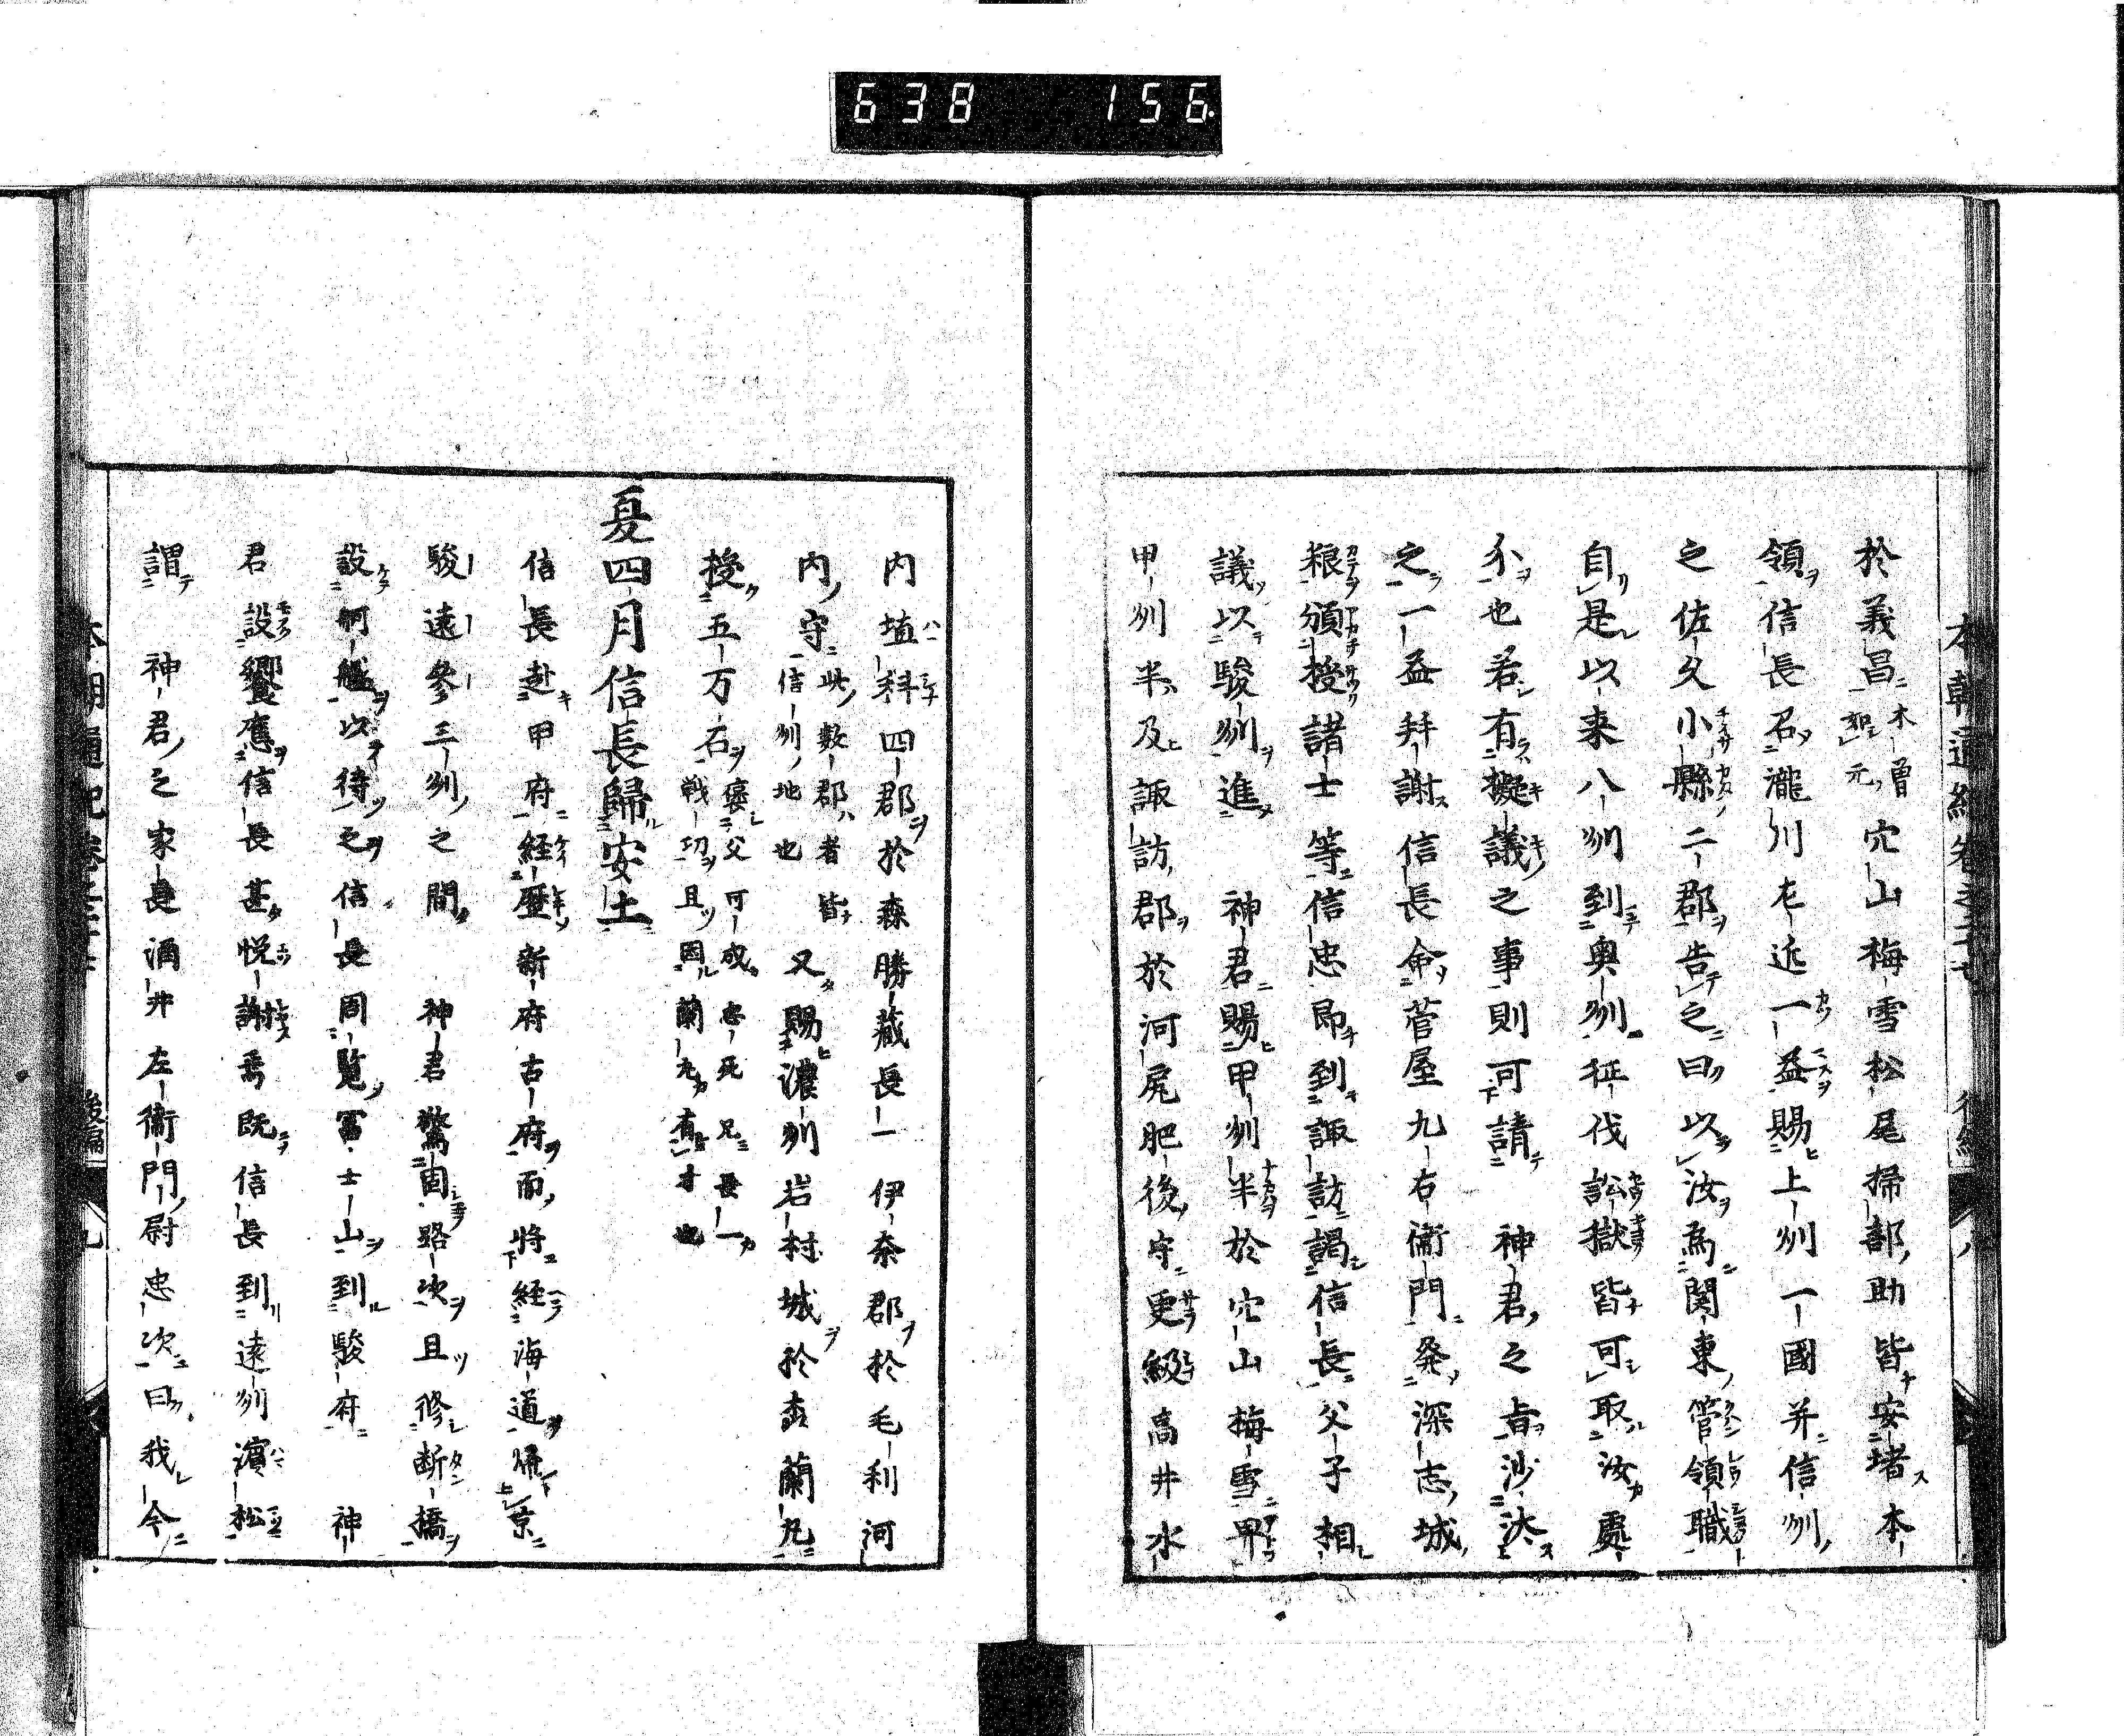 638 156
於義昌木曽如元穴山梅雪松尾掃部助皆安堵本
領信長召瀧川左近一益賜上州一國并信州
之佐久小縣二郡告之曰以汝為関東管領職
自是以来八州到奥州征伐訟獄皆可取汝處
分也若有擬議之事則可請神君之旨沙汰
之一益拜謝信長命菅屋九右衛門発深志城
粮頒授諸士等信忠即到諏訪謁信長父子相
議以駿州進神君賜甲州半於穴山梅雪畀
甲州半及諏訪郡於河尻肥後守更級高井水
内埴科四郡於森勝蔵長一伊奈郡於毛利河
内守此数郡者皆信州地也又賜濃州岩村城於森蘭丸
授五万石褒父可成忠死兄長一戦功且因蘭丸有才也
夏四月信長歸安土
信長赴甲府経歴新府古府而将経海道帰京
駿遠参三州之間神君警固路次且修断橋
設舸艦以待之信長周覧冨士山到駿府神
君設饗應信長甚悦謝焉既信長到遠州濵松
謂神君之家長酒井左衛門尉忠次曰我今